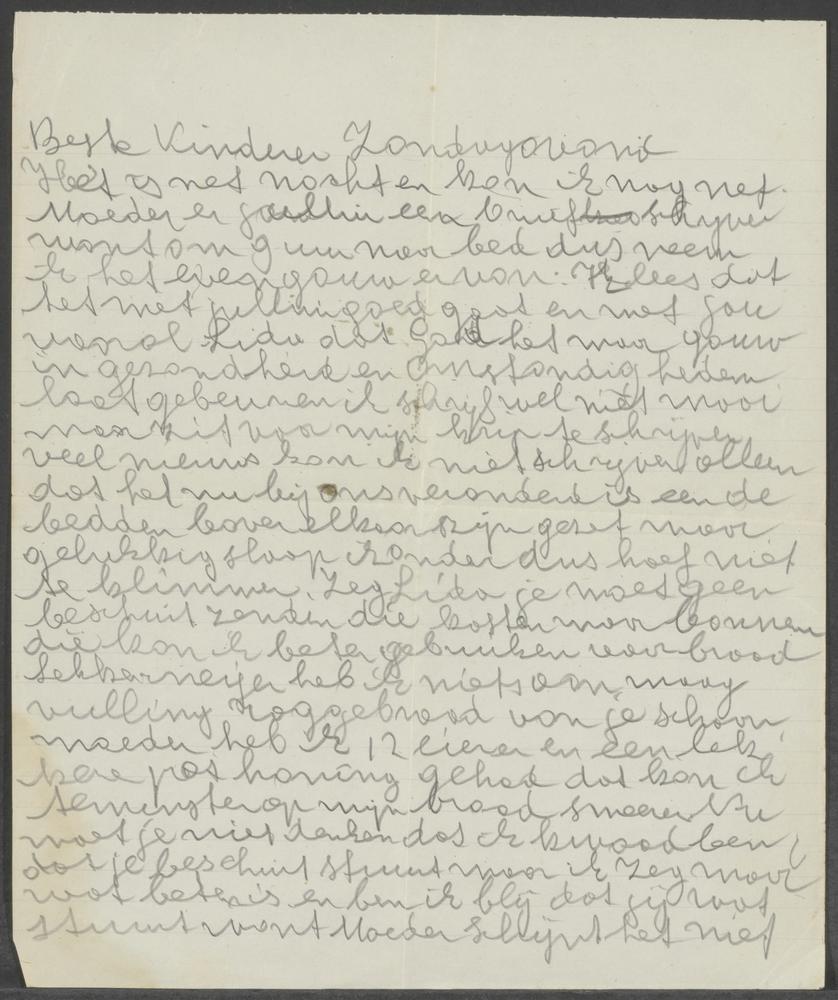 Beste Kinderen Zondagavond
Het is net nacht en kan ik nog net
Moeder en jullie een brief schryven
want om 9 uur naar bed dus neem
ik het even gauw ervan. Ik lees dat
het met jullie goed gaat en met jou
vooral Lida dat God het maar gauw
in gezondheid en omstandigheden
laat gebeuren ik schrijf wel niet mooi
maar zit voor mijn krip te schrijven
veel nieuws kan ik niet schryven alleen
dat het nu bij ons veranderd is een de
bedden boven elkaar zijn gezet maar
gelukkig slaap ik onder dus hoef niet
te klimmen. Zeg Lida je moet geen
beschuit zenden die kosten maar bonnen
die kan ik beter gebruiken voor brood
lekkerneijen heb ik niets om maag
vulling roggebrood van je schoon
moeder heb ik 12 eieren en een lek
kere pot honing gehad dat kan ik
teminste op mijn brood smeren. Nu
moet je niet denken dat ik kwaad ben
dat je beschuit stuurt maar ik zeg maar
wat beter is en ben ik blij dat jij wat
stuurt want Moeder schijnt het niet